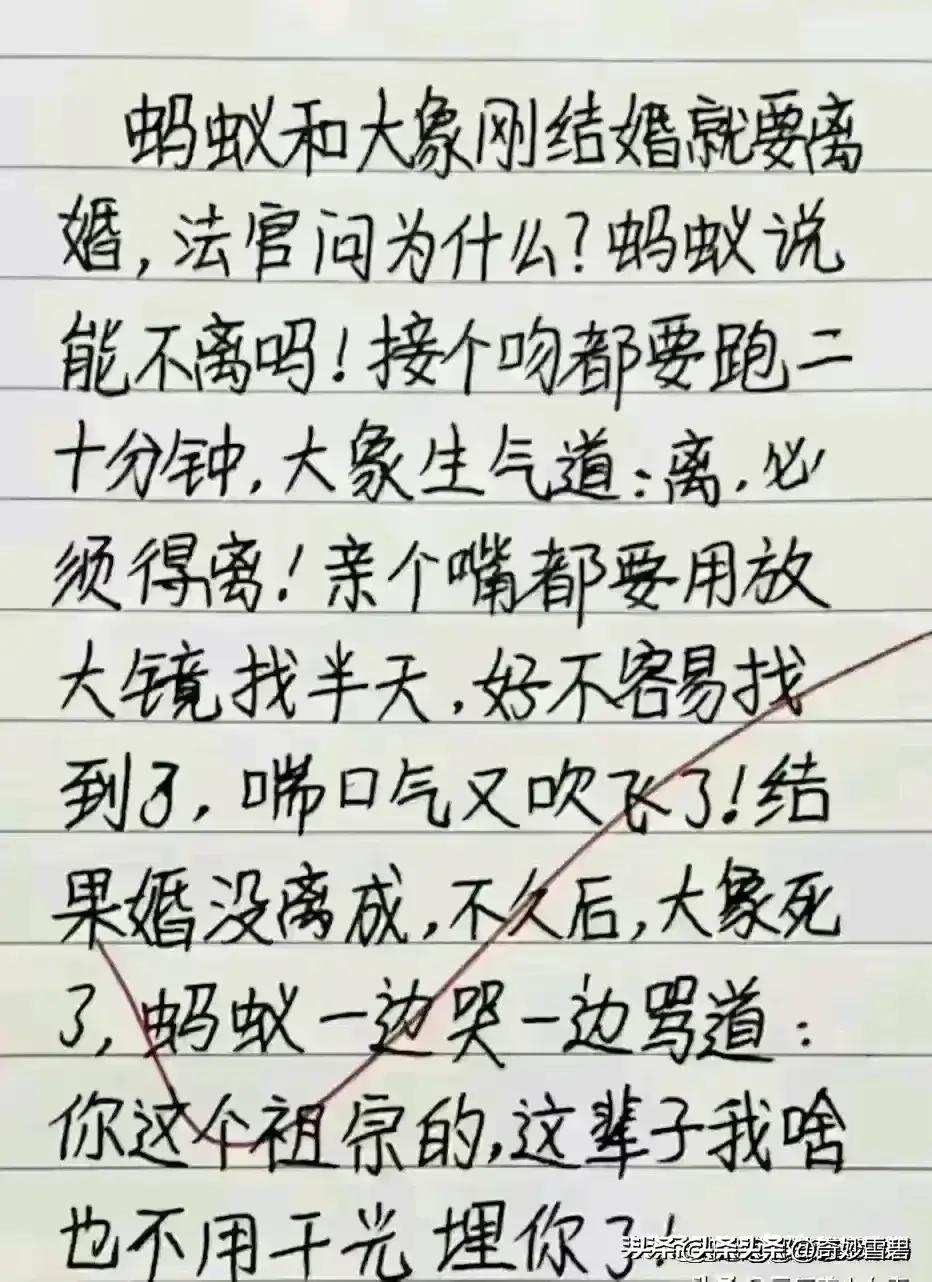 蚂蚁和大象刚结婚就要离
婚,法官问为什么?蚂蚁说
能不离吗!接个吻都要跑二
十分钟,大象生气道:离,必
须得离!亲个嘴都要用放
大镜找半天,好不容易找
到了,喘口气又吹飞了!结
果婚没离成,不久后,大象死
了,蚂蚁一边哭一边骂道:
你这个祖宗的,这辈子我啥
也不用干光埋你了!